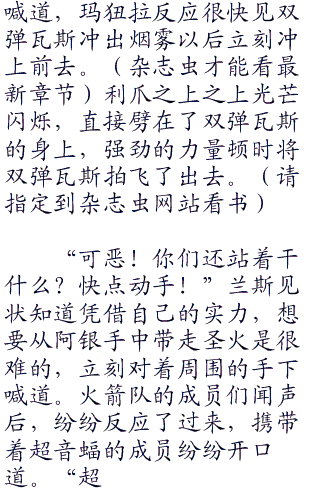 喊道，玛狃拉反应很快见双
弹瓦斯冲出烟雾以后立刻冲
上前去。（杂志虫才能看最
新章节）利爪之上之上光芒
闪烁，直接劈在了双弹瓦斯
的身上，强劲的力量顿时将
双弹瓦斯拍飞了出去。（请
指定到杂志虫网站看书）
“可恶！你们还站着干
什么？快点动手！”兰斯见
状知道凭借自己的实力，想
要从阿银手中带走圣火是很
难的，立刻对着周围的手下
喊道。火箭队的成员们闻声
后，纷纷反应了过来，携带
着超音蝠的成员纷纷开口
道。“超